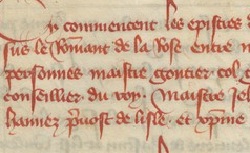 Cy commencent les epistres d
sus le Rommant de la Rose entre n
personnes maistre gontier col g
conseillier du roy. Maistre Jeh
hannez prevost de lisle. et xpine